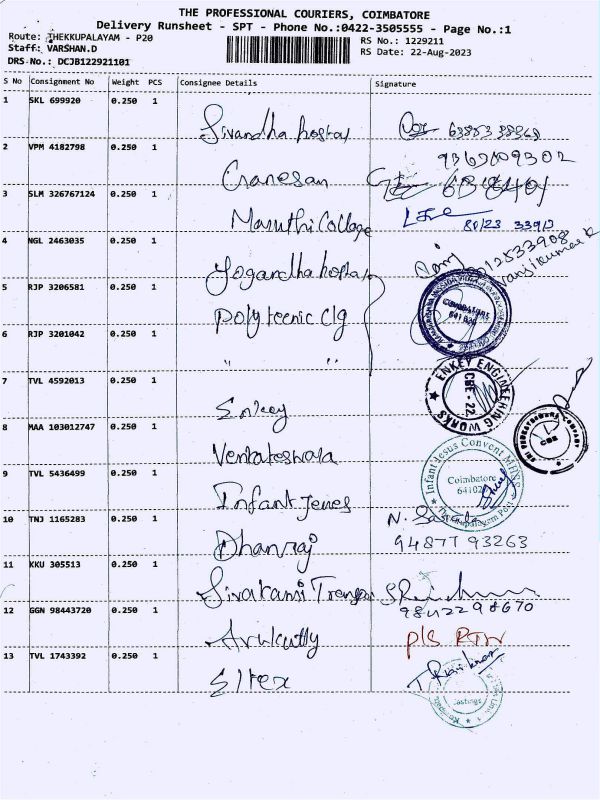 THE PROFESSIONAL COURIERS, COIMBATORE
Delivery Runsheet - SPT - Phone No.:0422-3505555 - Page No.:1
Route: THEKKUPALAYAM - P20
RS No.: 1229211
Staff: VARSHAN.D
RS Date: 22-Aug-2023
DRS-No.: DCJB122921101
S No Consignment No Weight PCS Consignee Details Signature
1 SKL 699920 0.250 1
Sivandha hostal
2 VPM 4182798 0.250 1
Ganesan
3 SLM 326767124 0.250 1
Maruthi College
4 NGL 2463035 0.250 1
Yogandha hostal
5 RJP 3206581 0.250 1
Polyteenic clg
6 RJP 3201042 0.250 1
" "
ENKEY ENGINEERING WORKS
CBE - 22
7 TVL 4592013 0.250 1
Enkey
8 MAA 103012747 0.250 1
Venkateswala
Infant Jesus Convent
Coimbatore
9 TVL 5436499 0.250 1
Infant Jenes
10 TNJ 1165283 0.250 1
Dhanraj
94877 93263
11 KKU 305513 0.250 1
Sivakami
9842298670
12 GGN 98443720 0.250 1
Arukutty
pls RTN
13 TVL 1743392 0.250 1
Eltex